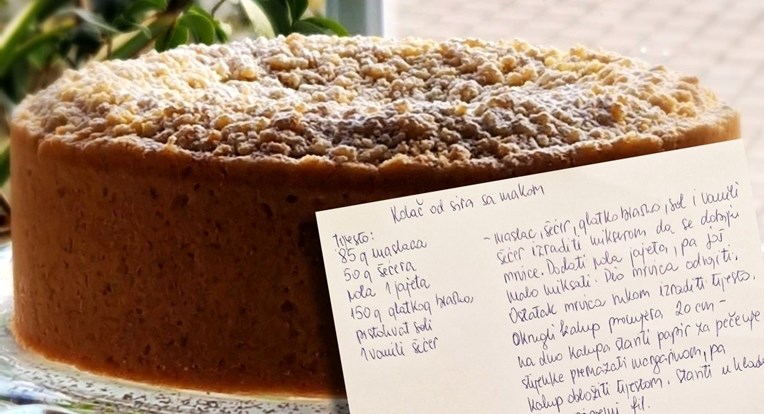 Kolač od sira sa makom
Tijesto:
85 g maslaca
50 g šećera
pola 1 jajeta
150 g glatkog brašna
prstohvat soli
1 vanili šećer
- maslac, šećer, glatko brašno, sol i vanili
šećer izraditi mikserom da se dobiju
mrvice. Dodati pola jajeta, pa još
malo miksati. Dio mrvica odvojiti.
Ostatak mrvica rukom izraditi tijesto.
Okrugli kalup promjera 20 cm -
na dno kalupa staviti papir za pečenje
stjenke premazati margarinom, pa
kalup obložiti tijestom. Staviti u hlad
fil.